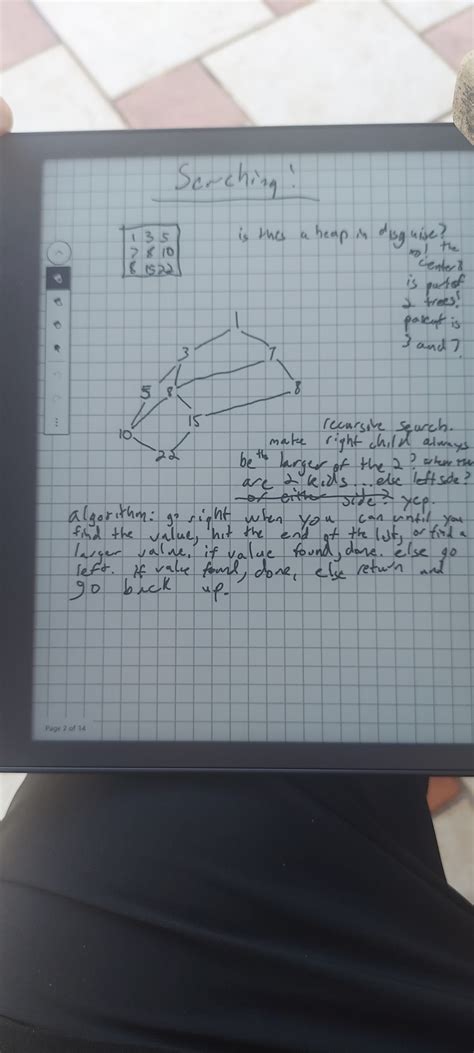 Searching!
1 3 5
7 8 10
8 15 22
is this a heap in disguise?
no! the
center 8
is part of
2 trees!
parent is
3 and 7
1
3 7
5 8 8
15
10
22
recursive search.
make right child always
be the larger of the 2? when there
are 2 kids... else left side?
or either side? yep.
algorithm: go right when you can until you
find the value, hit the end of the list, or find a
larger value, if value found, done. else go
left. if value found, done, else return and
go back up.
Page 2 of 14